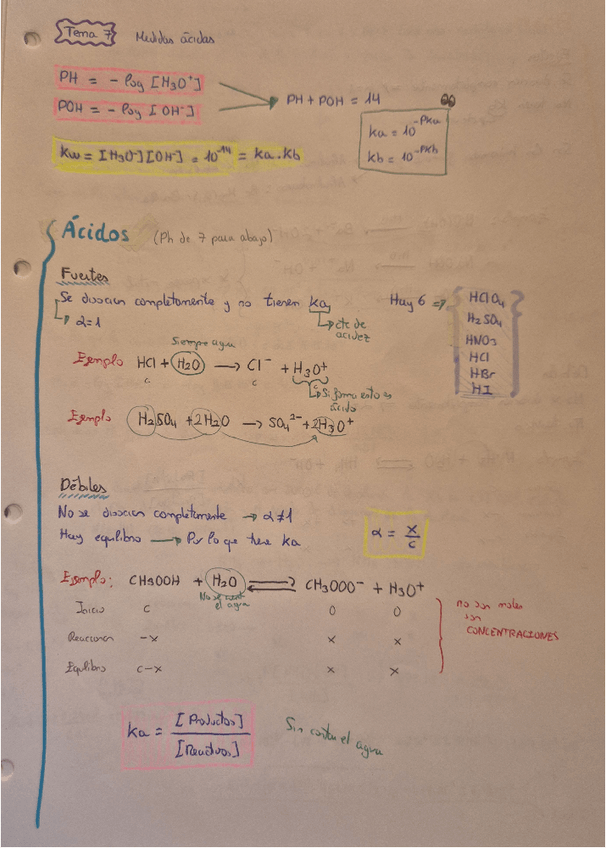 Tema 7 Medidas ácidas
PH = - log [H3O+]
POH = - log [OH-]
PH + POH = 14
Ka = 10^-PKa
Kb = 10^-PKb
Kw = [H3O+][OH-] = 10^-14 = Ka.Kb
Ácidos (Ph de 7 para abajo)
Fuertes
Se disocian completamente y no tienen Ka
↳ α=1
↳ cte de
acidez
Hay 6 ⇒
HClO4
H2SO4
HNO3
HCl
HBr
HI
Siempre agua
Ejemplo HCl + H2O → Cl- + H3O+
c c c
↳ Si forma esto es
ácido
Ejemplo H2SO4 + 2H2O → SO4^2- + 2H3O+
Débiles
No se disocian completamente → α≠1
Hay equilibrio → Por lo que tiene Ka
α = x/c
Ejemplo: CH3OOH + H2O ⇌ CH3OOO- + H3O+
No se cuenta
el agua
Inicio c 0 0
Reaccionan -x x x
Equilibrio c-x x x
no son moles
son
CONCENTRACIONES
Ka = [Productos]/[Reactivos]
Sin contar el agua